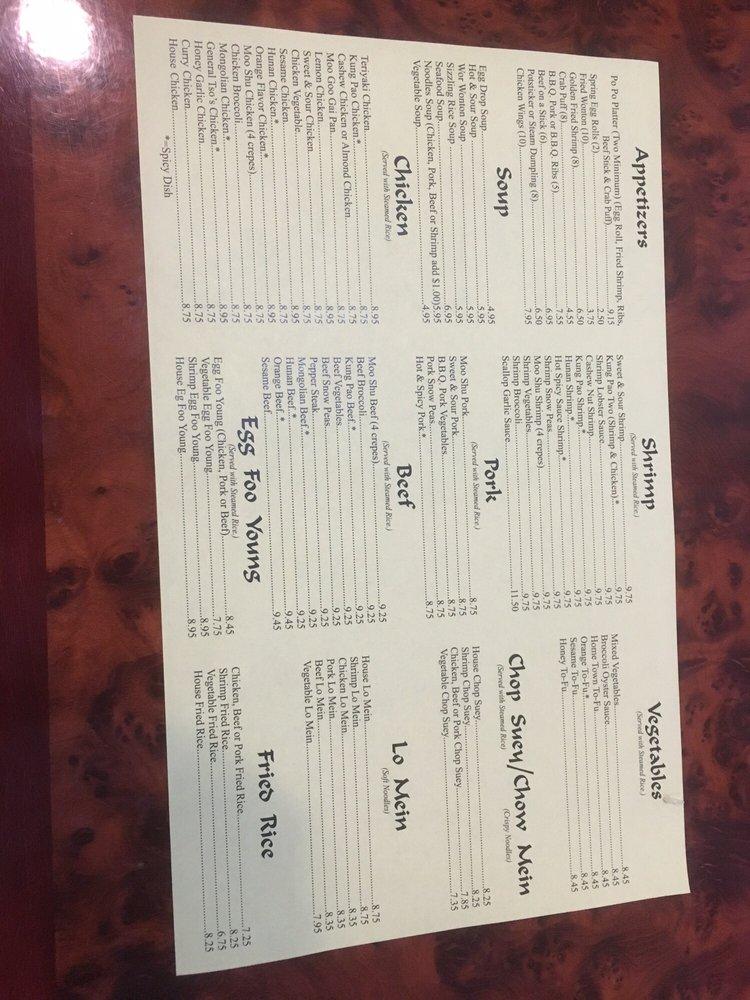 Appetizers
Po Po Platter (Two Minimum) (Egg Roll, Fried Shrimp, Ribs,
Beef Stick & Crab Puff) 9.15
Spring Egg Rolls (2) 2.50
Fried Wonton (10) 3.75
Golden Fried Shrimp (8) 6.50
Crab Puff (8) 4.55
B.B.Q. Pork or B.B.Q. Ribs (5) 7.55
Beef on a Stick (6) 6.95
Potsticker or Steam Dumpling (8) 6.50
Chicken Wings (10) 7.95
Soup
Egg Drop Soup 4.95
Hot & Sour Soup 5.95
War Wonton Soup 5.95
Sizzling Rice Soup 5.95
Seafood Soup 6.95
Noodles Soup (Chicken, Pork, Beef or Shrimp add $1.00) 5.95
Vegetable Soup 4.95
Chicken
(Served with Steamed Rice)
Teriyaki Chicken 8.95
Kung Pao Chicken* 8.75
Cashew Chicken or Almond Chicken 8.75
Moo Goo Gai Pan 8.95
Lemon Chicken 8.75
Sweet & Sour Chicken 8.75
Chicken Vegetable 8.95
Sesame Chicken 8.75
Hunan Chicken* 8.95
Orange Flavor Chicken* 8.75
Moo Shu Chicken (4 crepes) 8.75
Chicken Broccoli 8.75
Mongolian Chicken* 8.95
General Tso's Chicken* 8.75
Honey Garlic Chicken 8.75
Curry Chicken 8.75
House Chicken 8.75
*=Spicy Dish
Shrimp
(Served with Steamed Rice.)
Sweet & Sour Shrimp 9.75
Kung Pao Two (Shrimp & Chicken)* 9.75
Shrimp Lobster Sauce 9.75
Cashew Nut Shrimp 9.75
Kung Pao Shrimp* 9.75
Hunan Shrimp* 9.75
Hot Spicy Sauce Shrimp* 9.75
Shrimp Snow Peas 9.75
Moo Shu Shrimp (4 crepes) 9.75
Shrimp Vegetables 9.75
Shrimp Broccoli 9.75
Scallop Garlic Sauce 11.50
Pork
(Served with Steamed Rice.)
Moo Shu Pork 8.75
Sweet & Sour Pork 8.75
B.B.Q. Pork Vegetables 8.75
Pork Snow Peas 8.75
Hot & Spicy Pork* 8.75
Beef
(Served with Steamed Rice.)
Moo Shu Beef (4 crepes) 9.25
Beef Broccoli 9.25
Kung Pao Beef* 9.25
Beef Vegetables 9.25
Beef Snow Peas 9.25
Pepper Steak 9.25
Mongolian Beef* 9.25
Hunan Beef* 9.25
Orange Beef* 9.45
Sesame Beef 9.45
Egg Foo Young
(Served with Steamed Rice.)
Egg Foo Young (Chicken, Pork or Beef) 8.45
Vegetable Egg Foo Young 7.75
Shrimp Egg Foo Young 8.95
House Eg Foo Young 8.95
Vegetables
(Served with Steamed Rice.)
Mixed Vegetables 8.45
Broccoli Oyster Sauce 8.45
Home Town To-Fu 8.45
Orange To-Fu* 8.45
Sesame To-Fu 8.45
Honey To-Fu 8.45
Chop Suey/Chow Mein
(Served with Steamed Rice) (Crispy Noodles)
House Chop Suey 8.25
Shrimp Chop Suey 8.25
Chicken, Beef or Pork Chop Suey 7.85
Vegetable Chop Suey 7.35
Lo Mein
(Soft Noodles)
House Lo Mein 8.75
Shrimp Lo Mein 8.75
Chicken Lo Mein 8.35
Pork Lo Mein 8.35
Beef Lo Mein 8.35
Vegetable Lo Mein 7.95
Fried Rice
Chicken, Beef or Pork Fried Rice 7.25
Shrimp Fried Rice 8.25
Vegetable Fried Rice 6.75
House Fried Rice 8.25